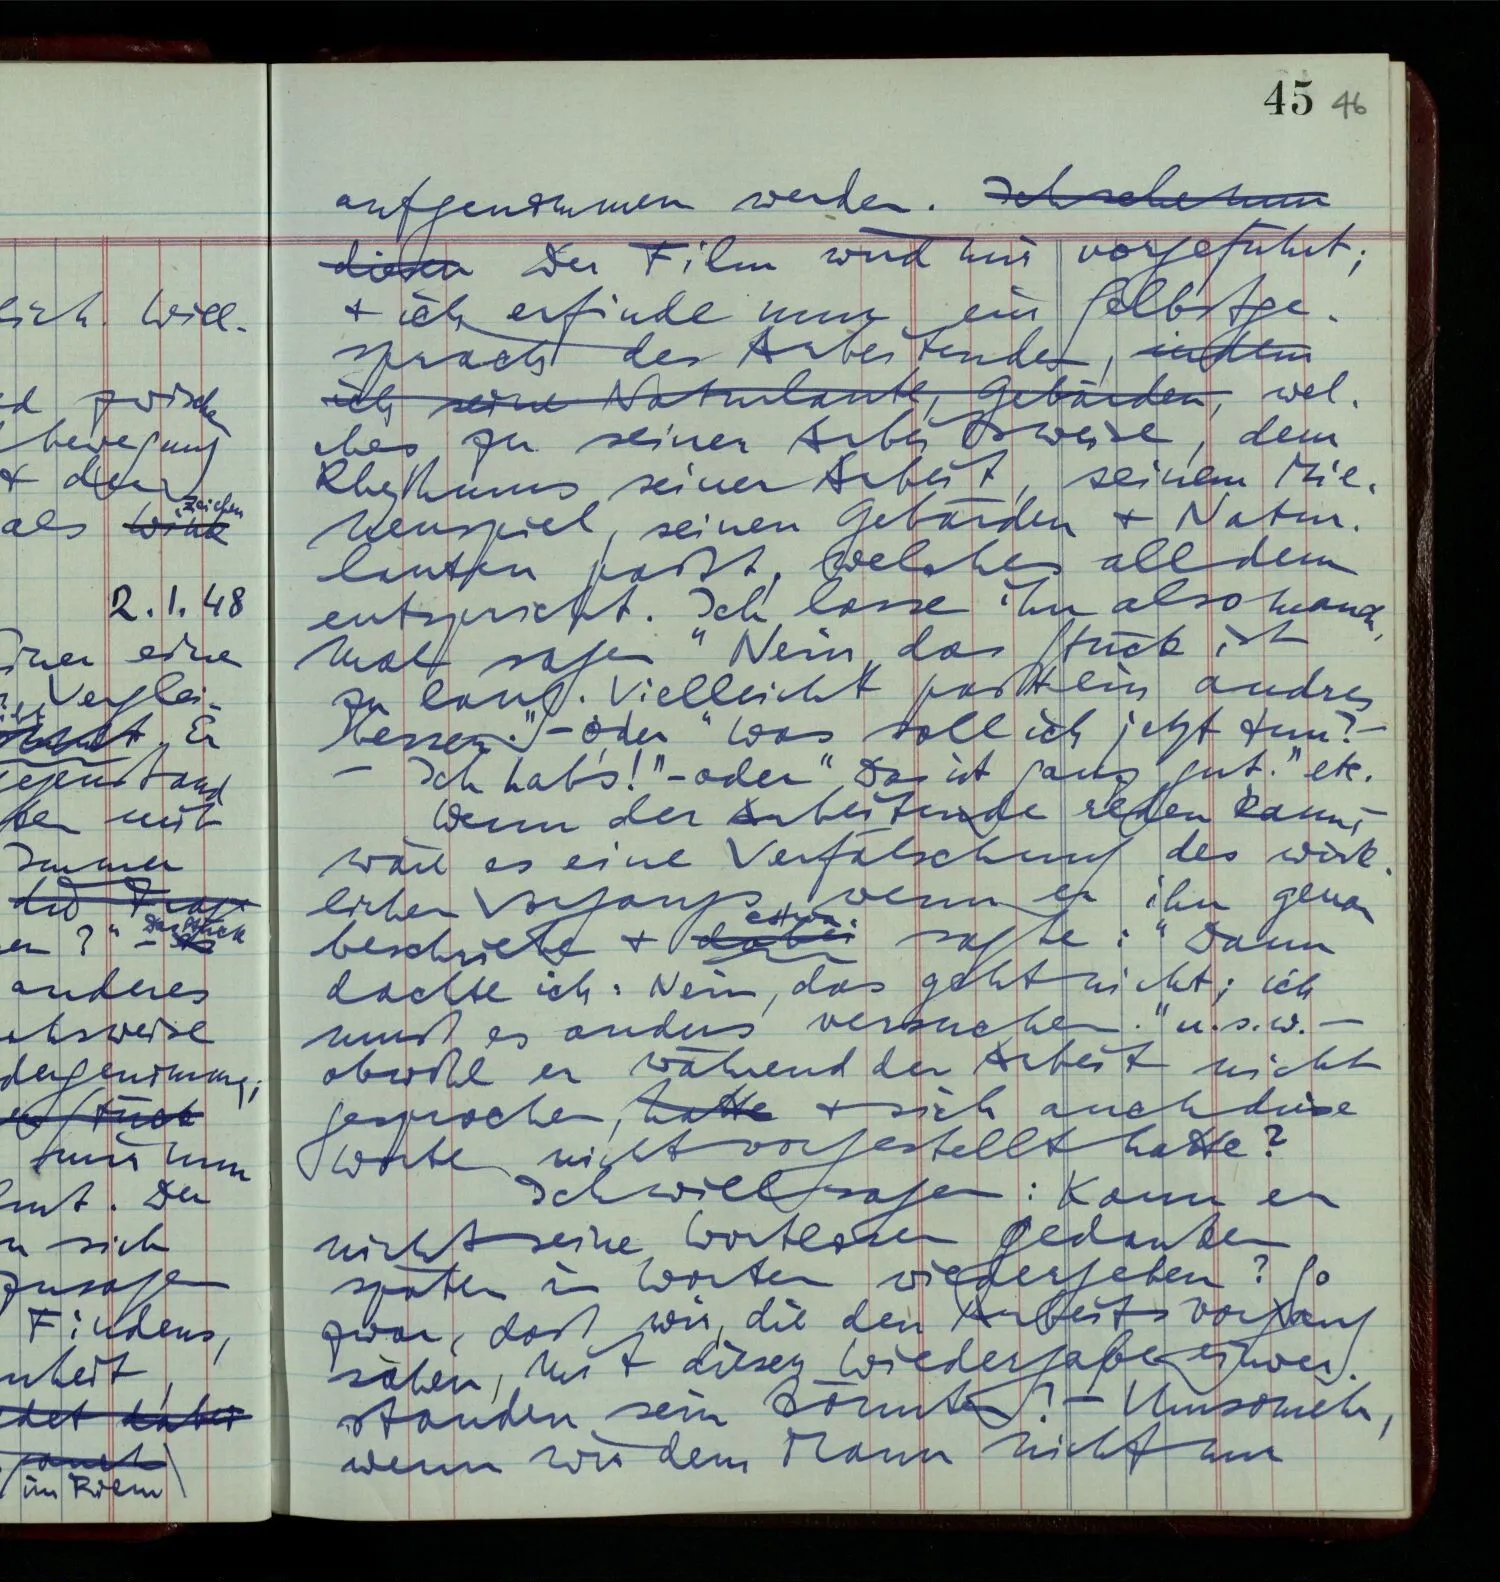 lich. Will-
zwischen
bewegung
+ dem
als Wink zeichen
2.1.48
einer eine
Verglei-
Er
Gegenstand
mit
Immer
die Frage
? " – Das Stück
anderes
Stück
nun
. Der
sich
zusagen
Findens,
dabei
auch
im Riem
45 46
aufgenommen werden. Ich sehe nun
diesen Der Film wird mir vorgeführt;
+ ich erfinde nun ein Selbstge-
spräch des Arbeitenden, indem
ich seine Naturlaute, Gebärden, wel-
ches zu seiner Arbeitsweise, dem
Rhythmus seiner Arbeit, seinem Mie-
nenspiel, seinen Gebärden + Natur-
lauten paßt, welches all dem
entspricht. Ich lasse ihn also manch-
mal sagen "Nein, das Stück ist
zu lang. Vielleicht paßt ein andres
besser." – oder "Was soll ich jetzt tun? –
– Ich hab's!" – oder "Das ist ganz gut." etc.
Wenn der Arbeitende reden kann, –
wäre es eine Verfälschung des wirk-
lichen Vorgangs, wenn er ihn genau
beschriebe + dabei etwa sagte: "Dann
dachte ich: Nein, das geht nicht; ich
muß es anders versuchen." u.s.w. –
obwohl er während der Arbeit nicht
gesprochen, hatte + sich auch diese
Worte nicht vorgestellt hatte?
Ich will sagen: Kann er
nicht seine wortlosen Gedanken
später in Worten wiedergeben? So
zwar, daß wir, die den Arbeitsvorgang
sähen, mit dieser Wiedergabe einver-
standen sein könnten? – Umsomehr,
wenn wir dem Mann nicht nur